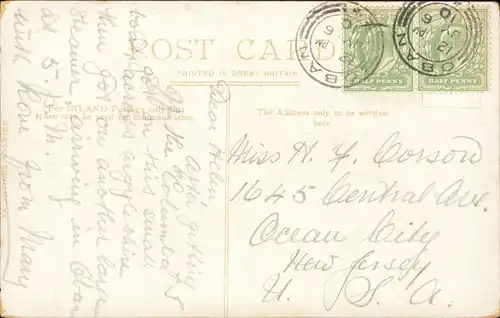 POST CARD
PRINTED IN GREAT BRITAIN
For INLAND Postage only this
space to be used for communication.
The Address only to be written
here.
HALF PENNY
HALF PENNY
OBAN
OBAN
Dear Helen
getting
the Columba
this small
boat across
then got on another large
steamer arriving in Oban
at 5. P. M.
with love from Mary
Miss H. F. Corson
1645 Central Ave.
Ocean City
New Jersey
U. S. A.